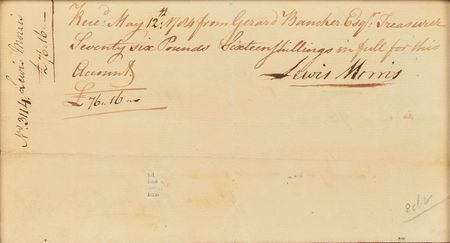 Rec.d May 12th 1784 from Gerard Bancker Esqr. Treasurer
Seventy six Pounds Sixteen Shillings in full for this
Account
£76.16—
Lewis Morris
No. 3114. Lewis Morris
£76.16—